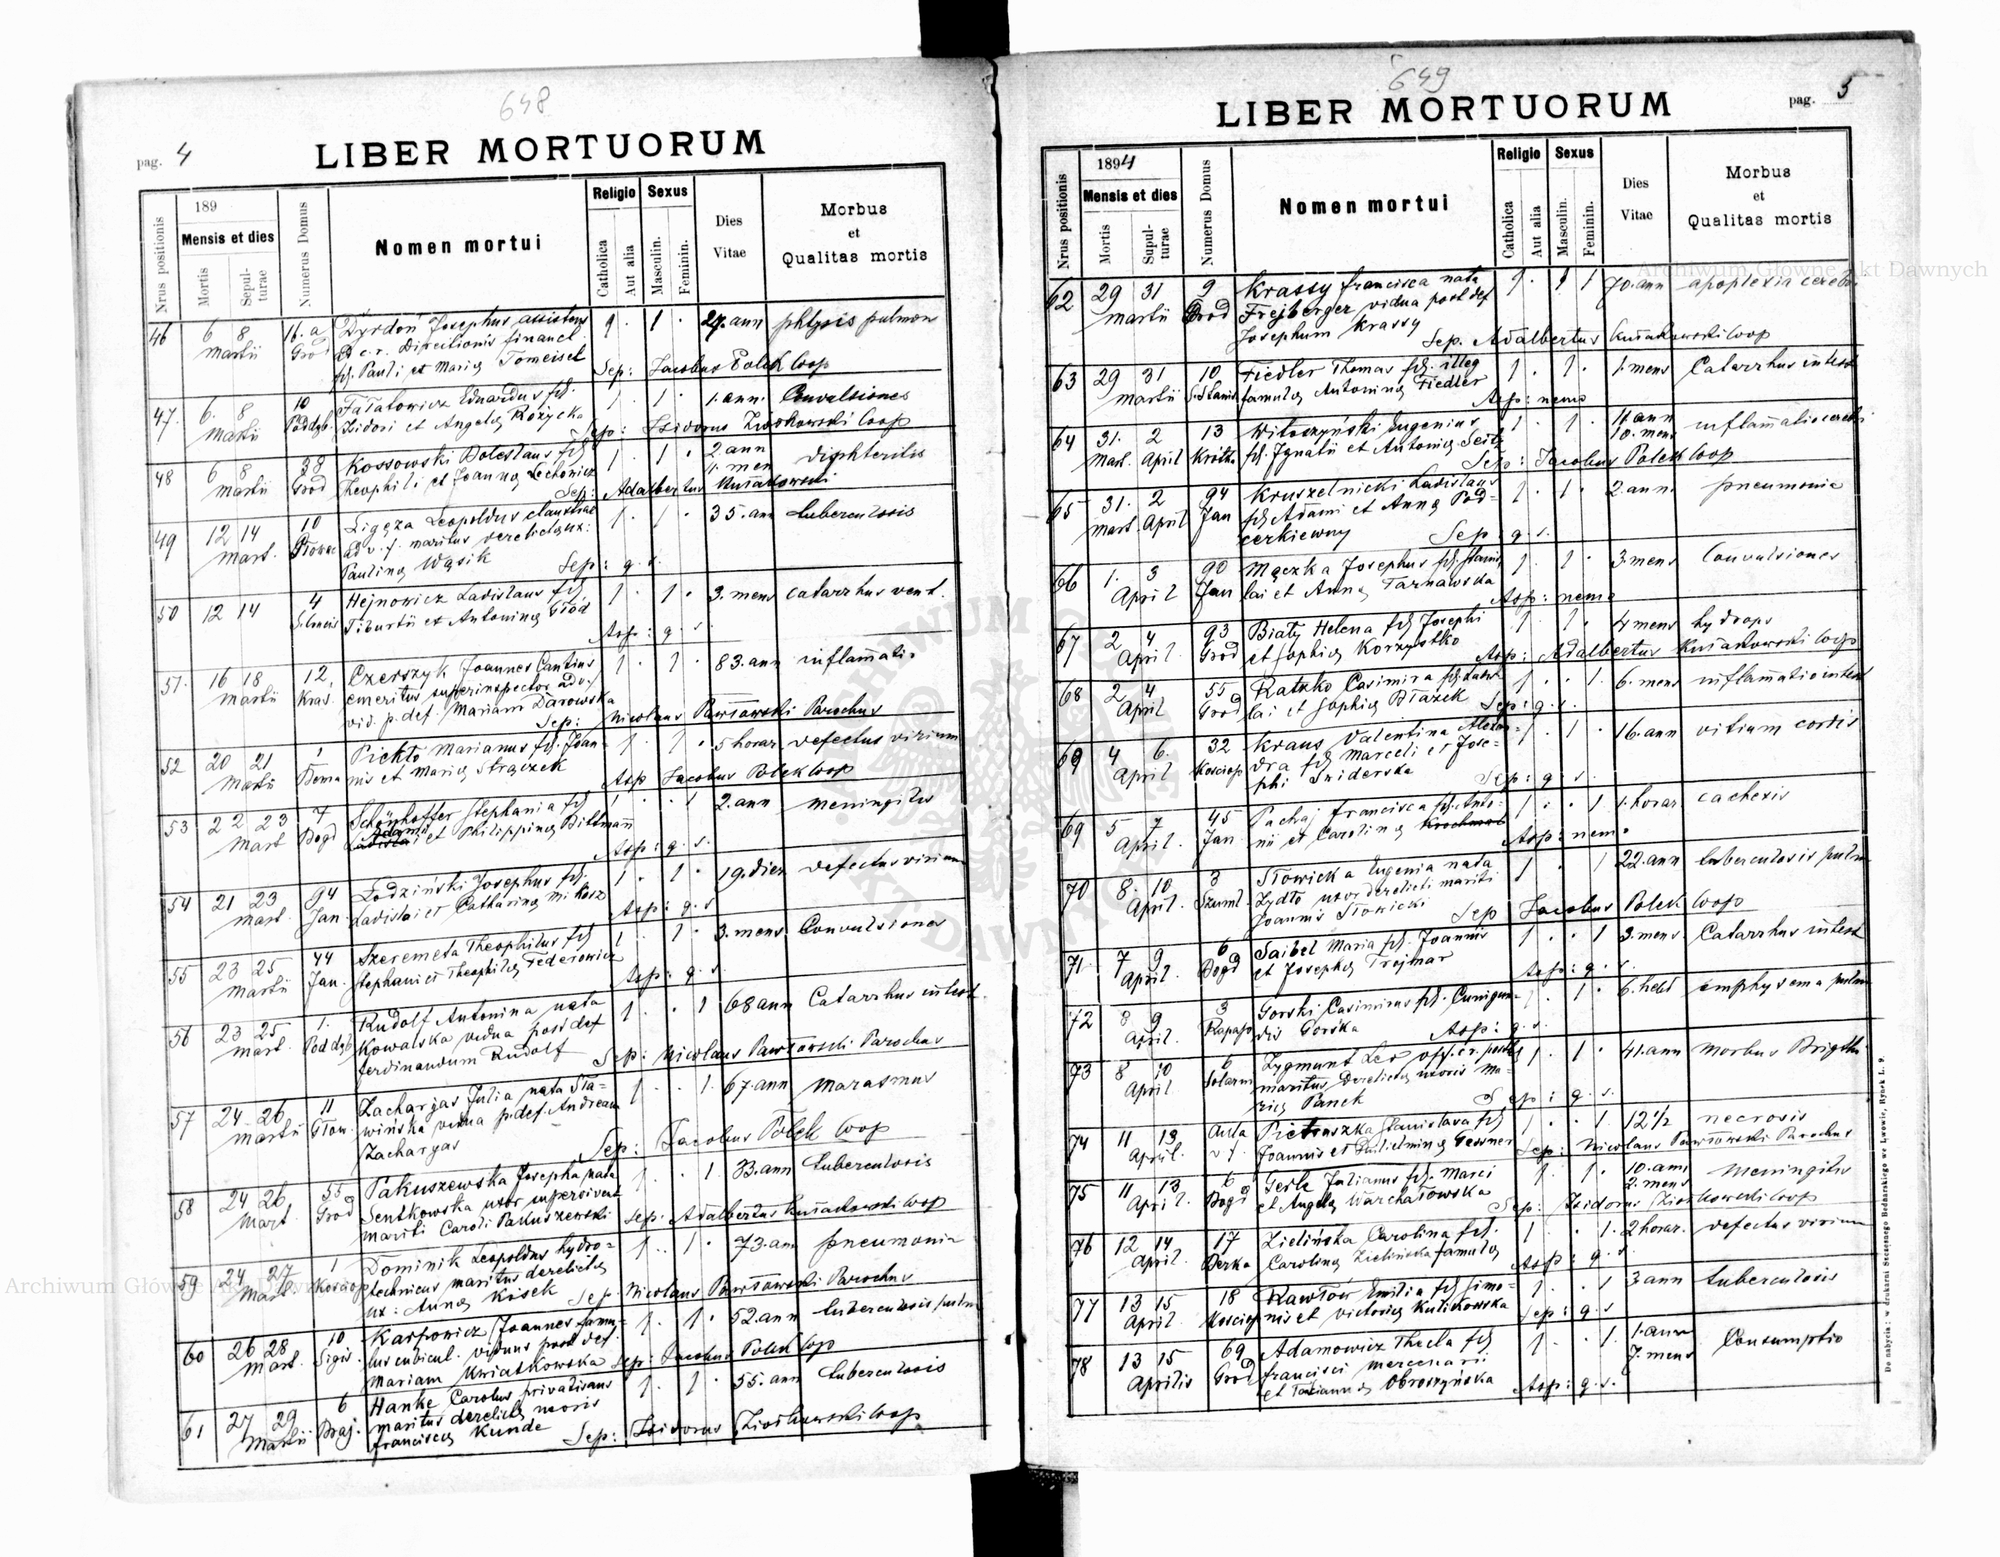 648
pag. 4
LIBER MORTUORUM
Nrus positionis
189
Mensis et dies
Mortis
Sepul-
turae
Numerus Domus
Nomen mortui
Religio
Catholica
Aut alia
Sexus
Masculin.
Feminin.
Dies
Vitae
Morbus
et
Qualitas mortis
46 6 8 11.a Dyrdoń Josephus assistens 1 · 1 · 27. ann phtysis pulmon
Martii Grod ad c.r. Directionis financ.
fil. Pauli et Mariae Tomeisel Sep: Jacobus Polek Coop
47. 6. 8 10 Eduardus fil. 1 · 1 · 1. ann. Convulsiones
Martii Poddęb. Isidori et Angelae Różycka Sep: Isidorus Ziółkowski Coop
48 6 8 38 Kossowski Boleslaus fil. 1 · 1 · 2 ann diphteritis
Martii Grod Theophili et Joannae Lechowicz 1. men
Sep: Adalbertus
49 12 14 10 Ligęza Leopoldus 1 · 1 · 35. ann tuberculosis
Mart. maritus derelictae ux:
Paulinae Wąsik Sep: q. s.
50 12 14 4 Hejnowicz Ladislaus fil. 1 · 1 · 3. mens catarrhus vent.
Tiburtii et Antoninae Głód
Asp: q. s.
51. 16 18 12. Czerszyk Joannes Cantius 1 · 1 · 83. ann inflammatio
Martii Kras. emeritus superinspector
vid. p. def. Mariam Darowska
Sep: Nicolaus Pawłowski Parochus
52 20 21 1 Piekło Marianus fil. Joan- 1 · 1 · 5 horar. defectus virium
Martii Bema nis et Mariae Strączek
Asp Jacobus Polek Coop
53 22 23 7 Schönhoffer Stephania fil. 1 · · 1 2. ann meningitis
Mart Bogd Adami et Philippinae Bittmann
Asp: q. s.
54 21 23 94 Łodziński Josephus fil. 1 · 1 · 19. dier defectus virium
Mart. Jan. Ladislai et Catharinae Mikosz
Asp: q. s.
55 23 25 44 Szeremeta Theophilus fil. 1 · 1 · 3. mens Convulsiones
Martii Jan. Stephani et Theophilae Federowicz
Asp: q. s.
56 23 25 1. Rudolf Antonina nata 1 · · 1 68 ann Catarrhus intest.
Mart. Poddęb Kowalska vidua post def
Ferdinandum Rudolf Sep: Nicolaus Pawłowski Parochus
57 24 26 11 Zachargas Julia nata Sła- 1 · · 1. 67. ann marasmus
Martii Głow. wińska vidua p. def. Andream
Zachargas Sep: Jacobus Polek Coop
58 24 26 55 Pakuszewska Josepha nata 1 · · 1. 33. ann tuberculosis
Mart. Grod Sentkowska uxor superviven
mariti Caroli Pakuszewski Sep: Adalbertus Coop
59 24 27 1 Dominik Leopoldus hydro- 1 · 1 · 73. ann pneumonia
Mart. technicus maritus derelictae
ux: Annae Kisek Sep: Nicolaus Pawłowski Parochus
60 26 28 10 Karpowicz Joannes famu- 1 · 1 · 52. ann tuberculosis pulm
Mart. Sigis. lus cubicul. viduus post def.
Mariam Kwiatkowska Sep: Jacobus Polek Coop
61 27 29 6 Hanke Carolus privatisans 1 · 1 · 55. ann tuberculosis
Martii Braj. maritus derelictae uxoris
Franciscae Kunde Sep: Isidorus Ziółkowski Coop
649
LIBER MORTUORUM
pag. 5
Nrus positionis
1894
Mensis et dies
Mortis
Sepul-
turae
Numerus Domus
Nomen mortui
Religio
Catholica
Aut alia
Sexus
Masculin.
Feminin.
Dies
Vitae
Morbus
et
Qualitas mortis
62 29 31 9 Krassy Francisca nata 1 · 1 70. ann apoplexia cerebri
Martii Grod Frejberger vidua post def
Josephum Krassy Sep. Adalbertus Coop
63 29 31 10 Fiedler Thomas fil. illeg 1 · 1 · 1. mens Catarrhus intest
Martii S. Stanis famulae Antoninae Fiedler
Asp: nemo
64 31. 2 13 Witoszyński Eugenius 1 · 1 · 11 ann inflammatio cerebri
Mart. April Krótka fil. Ignatii et Antoniae Seitz 10. mens
Sep: Jacobus Polek Coop
65 31. 2 94 Kruszelnicki Ladislaus 1 · 1 · 2. ann. pneumonia
Mart. April Jan fil. Adami et Annae Pod-
cerkiewny Sep: q. s.
66 1. 3 90 Mączka Josephus fil. Stanis- 1 · 1 · 3. mens Convulsiones
April Jan lai et Annae Tarnawska
Asp: nemo
67 2 4 93 Biały Helena fil. Josephi 1 · 1 · 4 mens hydrops
April Grod et Sophiae Korzystko Asp: Adalbertus Coop
68 2 4 55 Ratzko Casimira fil. 1 · · 1. 6. mens inflammatio intest
April Grod lai et Sophiae Błażek Sep: q. s.
69 4 6. 32 Kraus Valentina Alexan- 1 · 1 · 16. ann vitium cordis
April dra fil. Marceli et Jose-
phi Swiderska Sep: q. s.
69 5 7 45 Pachaj Francisca fil. Anto- 1 · · 1 1. horar. cachexis
April. Jan nii et Carolinae
Asp: nemo
70 8. 10 3 Słowicka Eugenia nata 1 · 1 22. ann tuberculosis pulm
April. Szuml. Zydło uxor derelicti mariti
Joannis Słowicki Sep Jacobus Polek Coop
71 7 9 6 Saibel Maria fil. Joannis 1 · · 1 3. mens. Catarrhus intest
April. Bogd et Josephae Trojnar
Asp: q. s.
72 8 9 3 Gorski Casimirus fil. Cunigun- 1 · 1 · 6. hebd emphysema pulm
April. Rapap dis Gorska Asp: q. s.
73 8 10 6 Zygmunt Leo 1 · 1 · 41. ann Morbus Brigthi
April Solarni maritus derelictae uxoris Ma-
riae Panek Sep: q. s.
74 11 13 Pietruszka Stanislava fil 1 · · 1. 12 1/2 necrosis
April. Joannis et Guilielminae Gessner Sep: Nicolaus Pawłowski Parochus
75 11 13 6 Gerle Julianus fil. Marci 1 · 1 · 10. ann meningitis
April. Bogd et Angelae Warchałowska 2. mens
Sep: Isidorus Ziółkowski Coop
76 12 14 17 Zielińska Carolina fil. 1 · · 1. 2 horar. defectus virium
April. Berka Carolinae Zielińska famulae
Asp: q. s.
77 13 15 18 Rawłów Emilia fil. Simo- 1 · · 1 3 ann tuberculosis
April. nis et Victoriae Kulikowska Sep: q. s.
78 13 15 69 Adamowicz Thecla fil 1 · · 1. 1. ann Consumptio
Aprilis Grod Francisci mercenarii 7. mens
et Tatiannae Obroszyńska Asp: q. s.
Do nabycia: w drukarni Szczęsnego Bednarskiego we Lwowie, Rynek L. 9.
Archiwum Główne Akt Dawnych
Archiwum Główne Akt Dawnych
ARCHIWUM GŁÓWNE AKT DAWNYCH